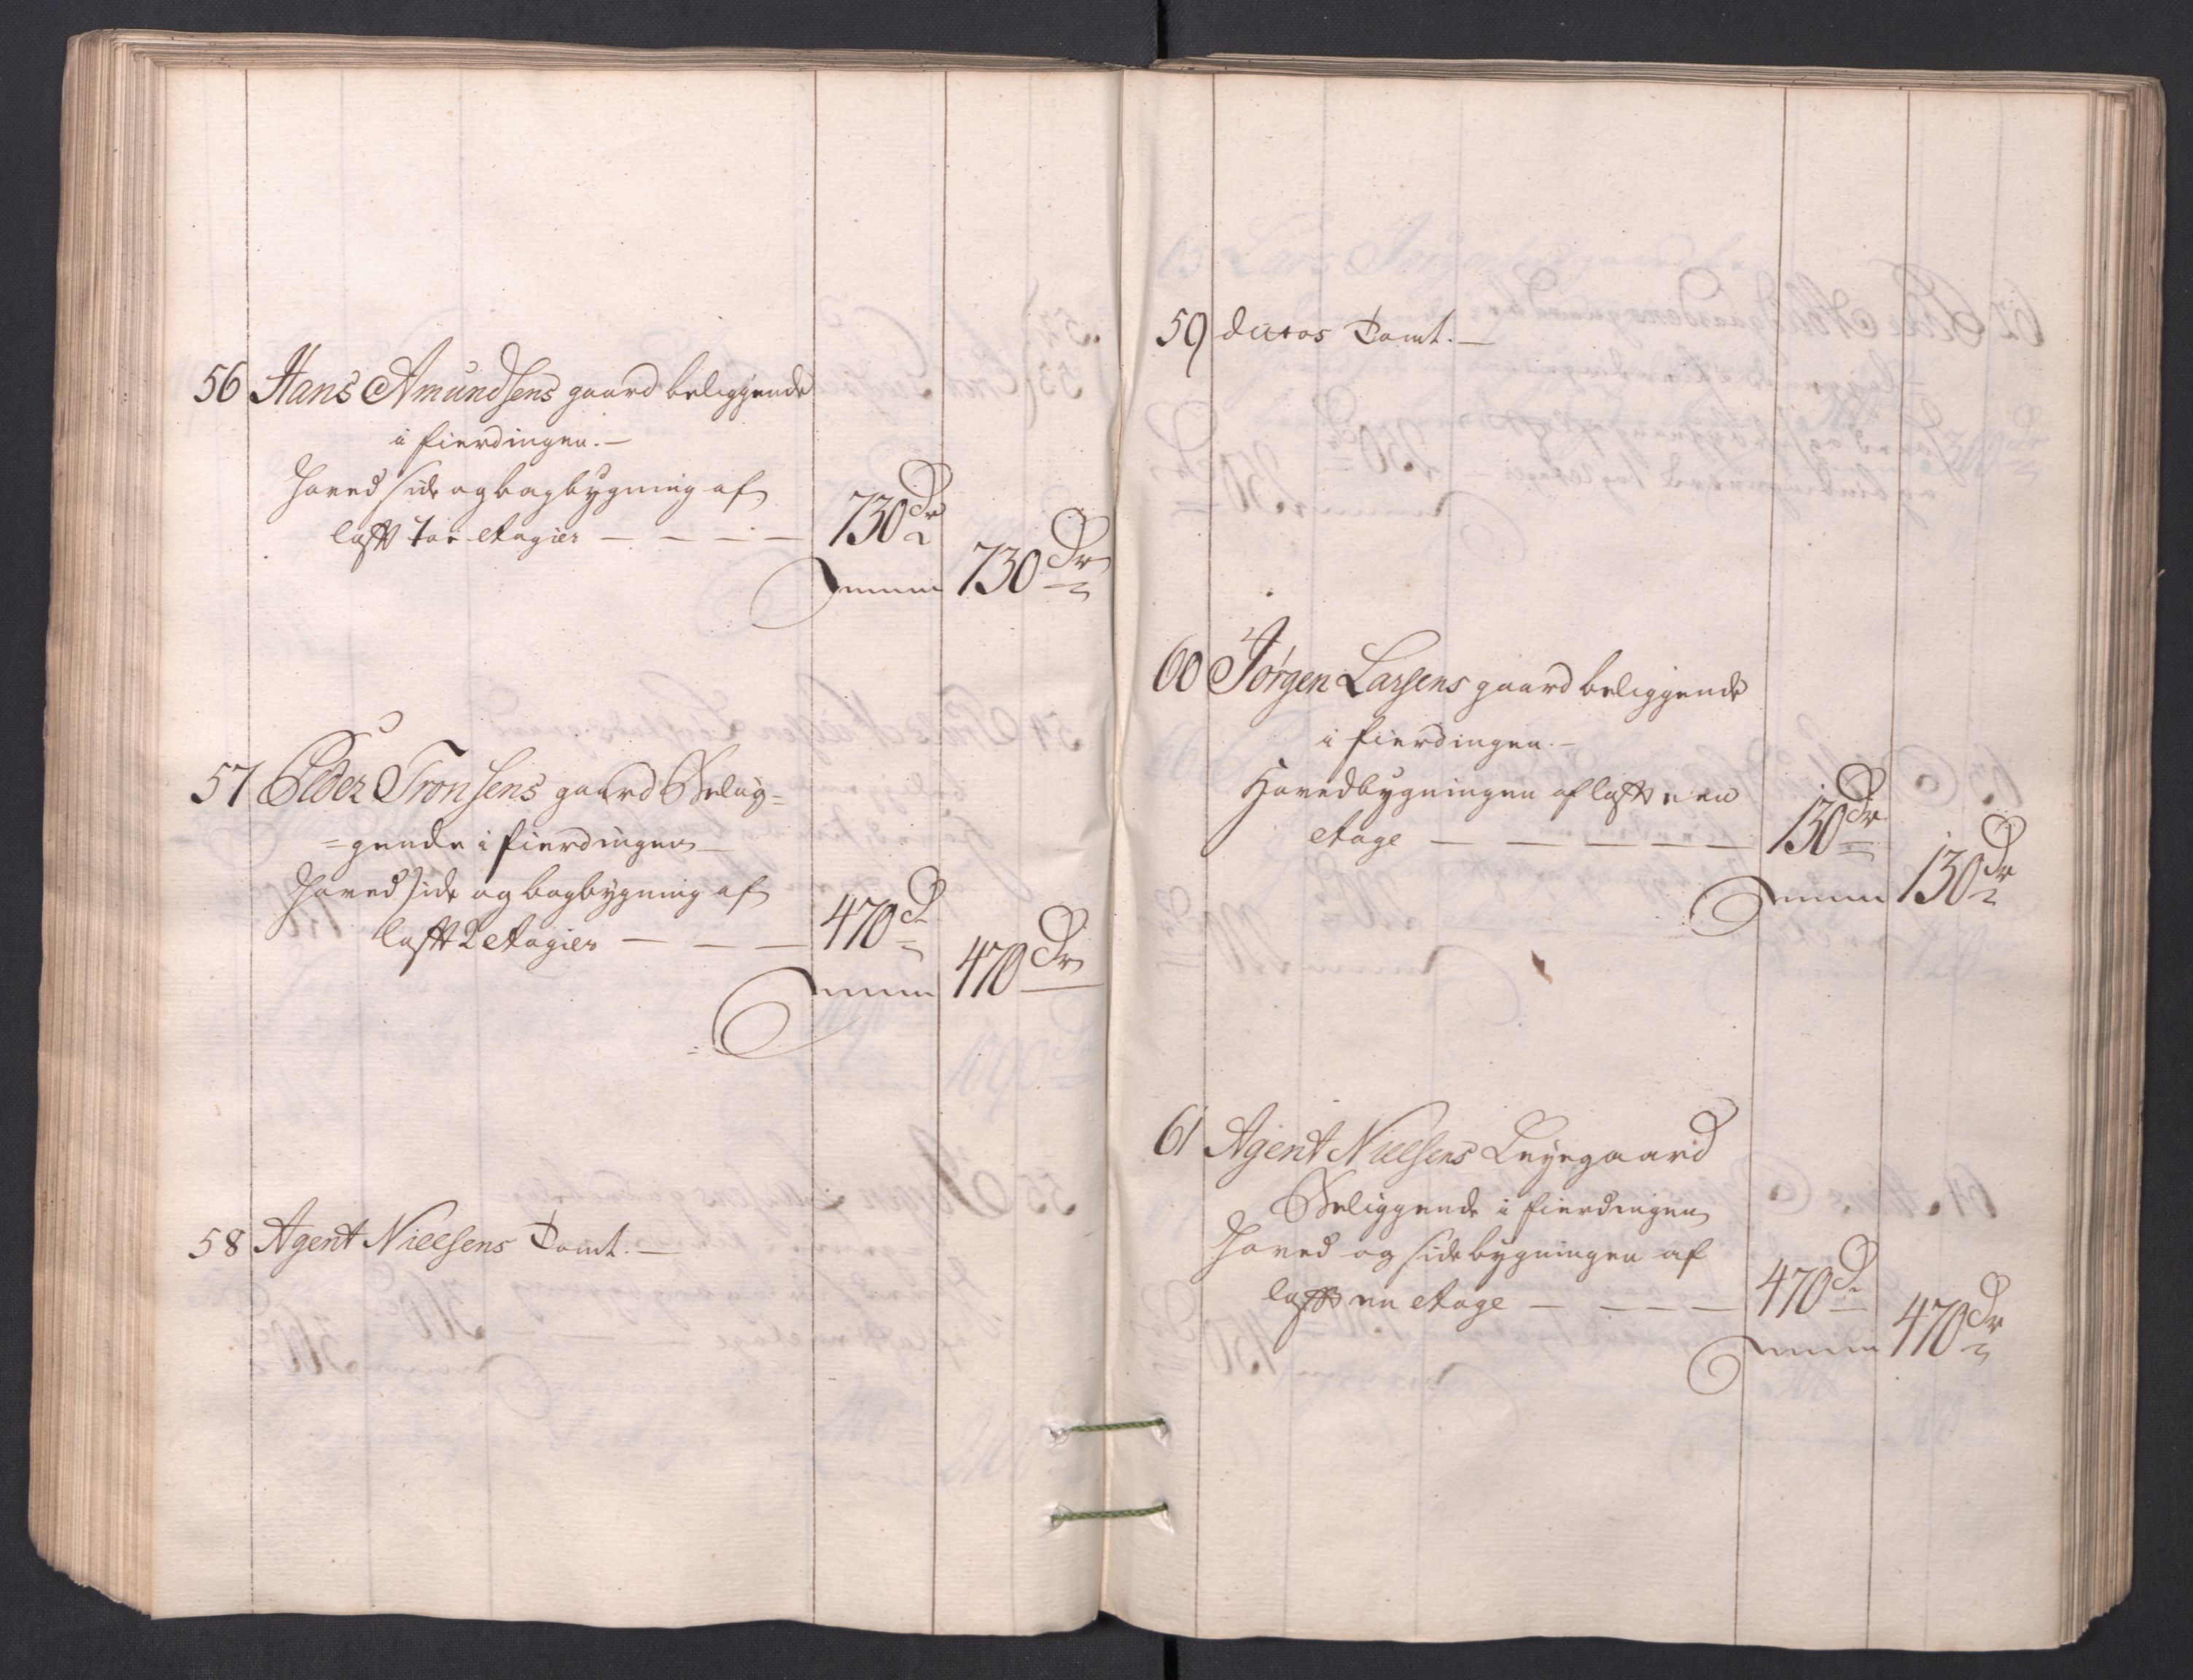 56 Hans Amundsens gaard beliggende
i fierdingen. —
Hoved side og bagbygning af
lafft toe etagier — — — — 730 Dr
Summa 730 Dr
57 Peder Tronsens gaard Belig=
=gende i fierdingen —
Hoved side og bagbygning af
lafft 2 etagier — — — 470 Dr
Summa 470 Dr
58 Agent Nielsens Tomt. —
59 dittos Tomt. —
60 Jörgen Larsens gaard beliggende
i fierdingen. —
Hovedbygningen af lafft een
etage — — — — — 130 Dr
Summa 130 Dr
61 Agent Nielsens Leyegaard
Beliggende i fierdingen
Hoved og sidebygningen af
lafft en etage — — — — 470 Dr
Summa 470 Dr